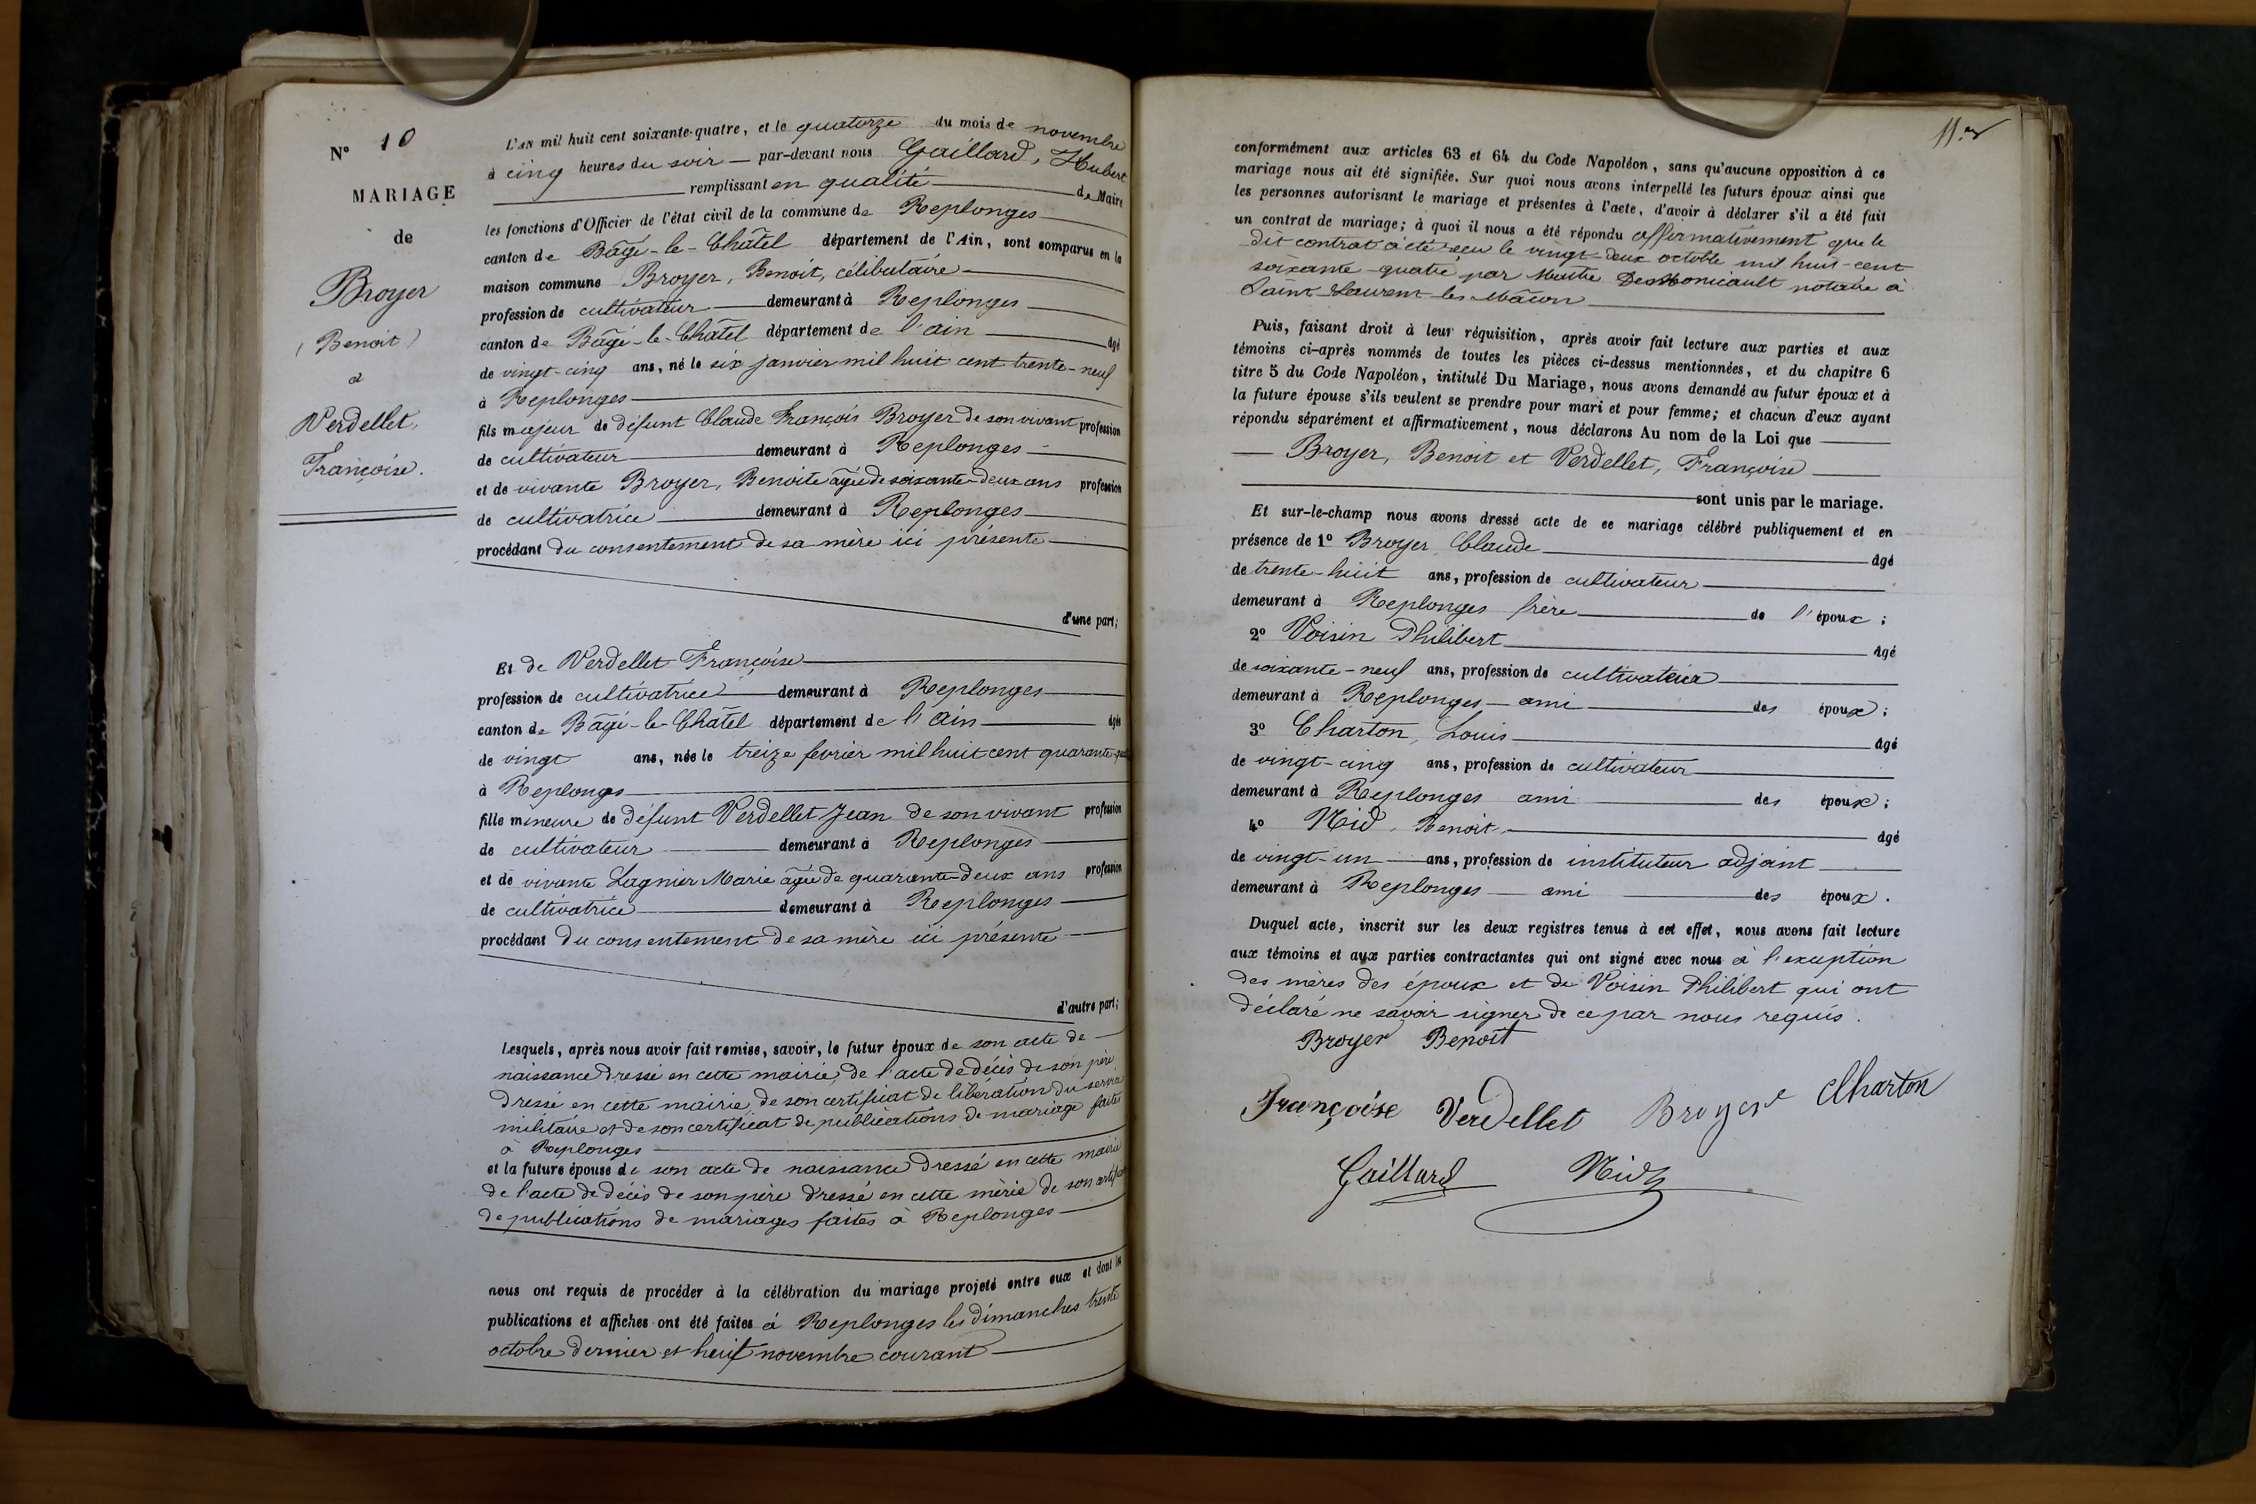 N° 10
MARIAGE
de
Broyer
(Benoit)
à
Verdellet,
Françoise.
L'AN mil huit cent soixante-quatre, et le quatorze du mois de novembre
à cinq heures du soir — par-devant nous Gaillard, Hubert
remplissant en qualité de Maire
les fonctions d'Officier de l'état civil de la commune de Replonges
canton de Bâgé-le-Châtel département de l'Ain, sont comparus en la
maison commune Broyer, Benoit, célibataire
profession de cultivateur demeurant à Replonges
canton de Bâgé-le-Châtel département de l'ain âgé
de vingt-cinq ans, né le six janvier mil huit cent trente-neuf
à Replonges
fils majeur de défunt Claude François Broyer de son vivant profession
de cultivateur demeurant à Replonges
et de vivante Broyer, Benoite âgée de soixante-deux ans profession
de cultivatrice demeurant à Replonges
procédant du consentement de sa mère ici présente
d'une part;
Et de Verdellet Françoise
profession de cultivatrice demeurant à Replonges
canton de Bâgé-le-Châtel département de l'Ain âgée
de vingt ans, née le treize fevrier mil huit cent quarante-
à Replonges
fille mineure de défunt Verdellet Jean de son vivant profession
de cultivateur demeurant à Replonges
et de vivante Lagnier Marie âgée de quarante-deux ans profession
de cultivatrice demeurant à Replonges
procédant du consentement de sa mère ici présente
d'autre part;
Lesquels, après nous avoir fait remise, savoir, le futur époux de son acte de
naissance dressé en cette mairie, de l'acte de décès de son père
dressé en cette mairie, de son certificat de libération du service
militaire et de son certificat de publications de mariage faites
à Replonges
et la future épouse de son acte de naissance dressé en cette mairie
de l'acte de décès de son père dressé en cette mèrie de son certificat
de publications de mariages faites à Replonges
nous ont requis de procéder à la célébration du mariage projeté entre eux et dont les
publications et affiches ont été faites à Replonges les dimanches trente
octobre dernier et novembre courant
conformément aux articles 63 et 64 du Code Napoléon, sans qu'aucune opposition à ce
mariage nous ait été signifiée. Sur quoi nous avons interpellé les futurs époux ainsi que
les personnes autorisant le mariage et présentes à l'acte, d'avoir à déclarer s'il a été fait
un contrat de mariage; à quoi il nous a été répondu affirmativement que le
dit contrat a été reçu le vingt-deux octobre mil huit-cent
soixante-quatre par Maître notaire à
Saint-Laurent-les-Mâcon
Puis, faisant droit à leur réquisition, après avoir fait lecture aux parties et aux
témoins ci-après nommés de toutes les pièces ci-dessus mentionnées, et du chapitre 6
titre 5 du Code Napoléon, intitulé Du Mariage, nous avons demandé au futur époux et à
la future épouse s'ils veulent se prendre pour mari et pour femme; et chacun d'eux ayant
répondu séparément et affirmativement, nous déclarons Au nom de la Loi que
Broyer, Benoit et Verdellet, Françoise
sont unis par le mariage.
Et sur-le-champ nous avons dressé acte de ce mariage célébré publiquement et en
présence de 1° Broyer, Claude âgé
de trente-huit ans, profession de cultivateur
demeurant à Replonges frère de l'époux;
2° Voisin Philibert âgé
de soixante-neuf ans, profession de cultivateur
demeurant à Replonges — ami des époux;
3° Charton, Louis âgé
de vingt-cinq ans, profession de cultivateur
demeurant à Replonges ami des époux;
4° Nid, Benoit, âgé
de vingt-un ans, profession de instituteur adjoint
demeurant à Replonges — ami des époux.
Duquel acte, inscrit sur les deux registres tenus à cet effet, nous avons fait lecture
aux témoins et aux parties contractantes qui ont signé avec nous à l'exception
des mères des époux et de Voisin Philibert qui ont
déclaré ne savoir signer de ce par nous requis.
Broyer Benoit
Françoise Verdellet Broyer Charton
Gaillard Nid